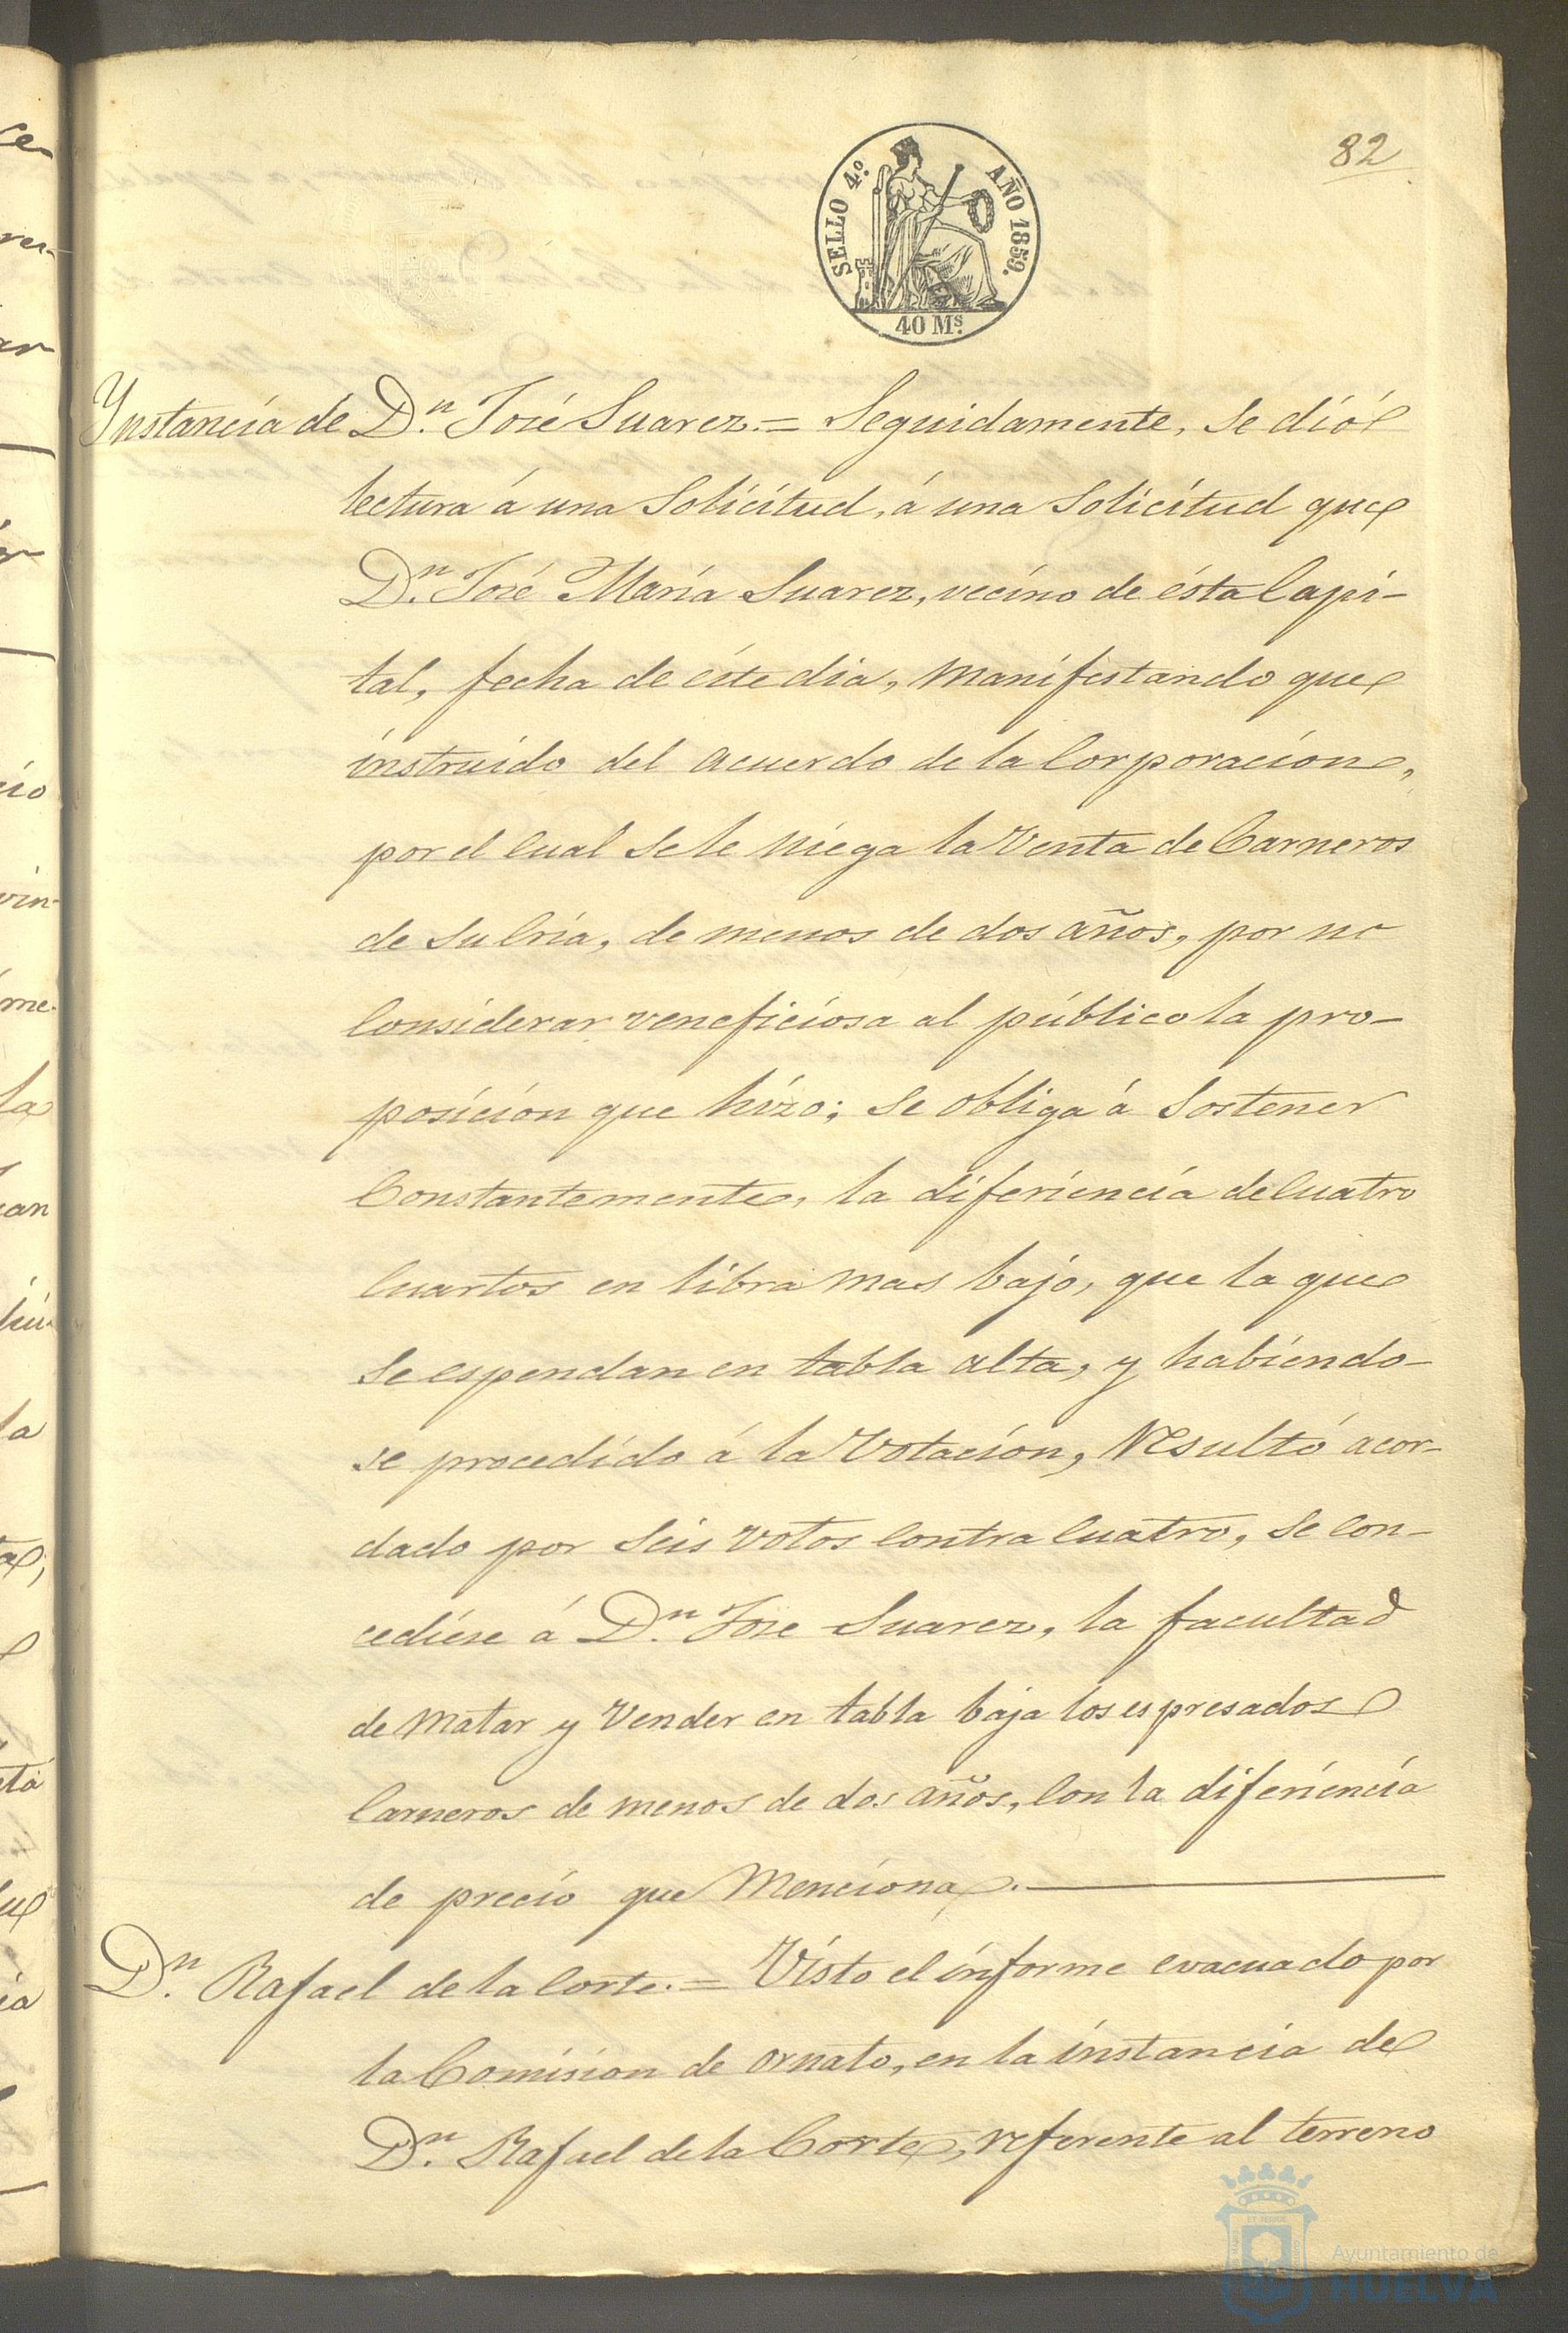 82
SELLO 4.º AÑO 1859.
40 Ms.
Ynstancia de D.n José Suarez.= Seguidamente, se dió
lectura á una Solicitud, á una Solicitud que
D.n José María Suarez, vecino de ésta Capi-
tal, fecha de éste dia, manifestando que
instruido del acuerdo de la Corporacion,
por el cual se le niega la venta de Carneros
de su cria, de menos de dos años, por no
considerar veneficiosa al público la pro-
posicion que hizo; se obliga á sostener
constantemente, la diferiencia de cuatro
cuartos en libra mas bajo, que la que
se espendan en tabla alta, y habiendo-
se procedido á la votacion, resultó acor-
dado por seis votos contra cuatro, se con-
cediese á D.n Jose Suarez, la facultad
de matar y vender en tabla baja los espresados
carneros de menos de dos años, con la diferiencia
de precio que menciona.
D.n Rafael de la Corte.= Visto el informe evacuado por
la Comision de ornato, en la instancia de
D.n Rafael de la Corte, referente al terreno
Ayuntamiento de
HUELVA